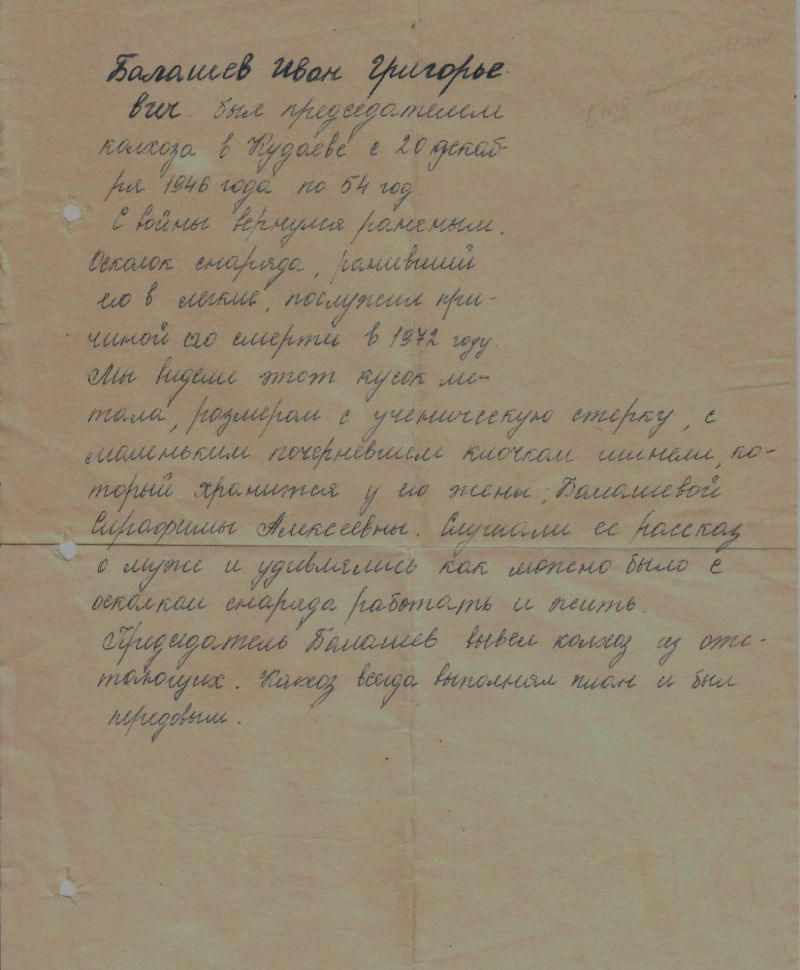 Балашев Иван Григорье-
вич был председателем
колхоза в Кудаеве с 20 декаб-
ря 1946 года по 54 год.
С войны вернулся раненым.
Осколок снаряда, ранивший
его в легкие, послужил при-
чиной его смерти в 1972 году.
Мы видели этот кусок ме-
тала, размером с ученическую стерку, с
маленьким почерневшем клочком шинели, ко-
торый хранится у его жены, Балашевой
Серафимы Алексеевны. Слушали ее рассказ
о муже и удивлялись как можно было с
осколком снаряда работать и жить.
Председатель Балашев вывел колхоз из отс-
тающих. Колхоз всегда выполнял план и был
передовым.